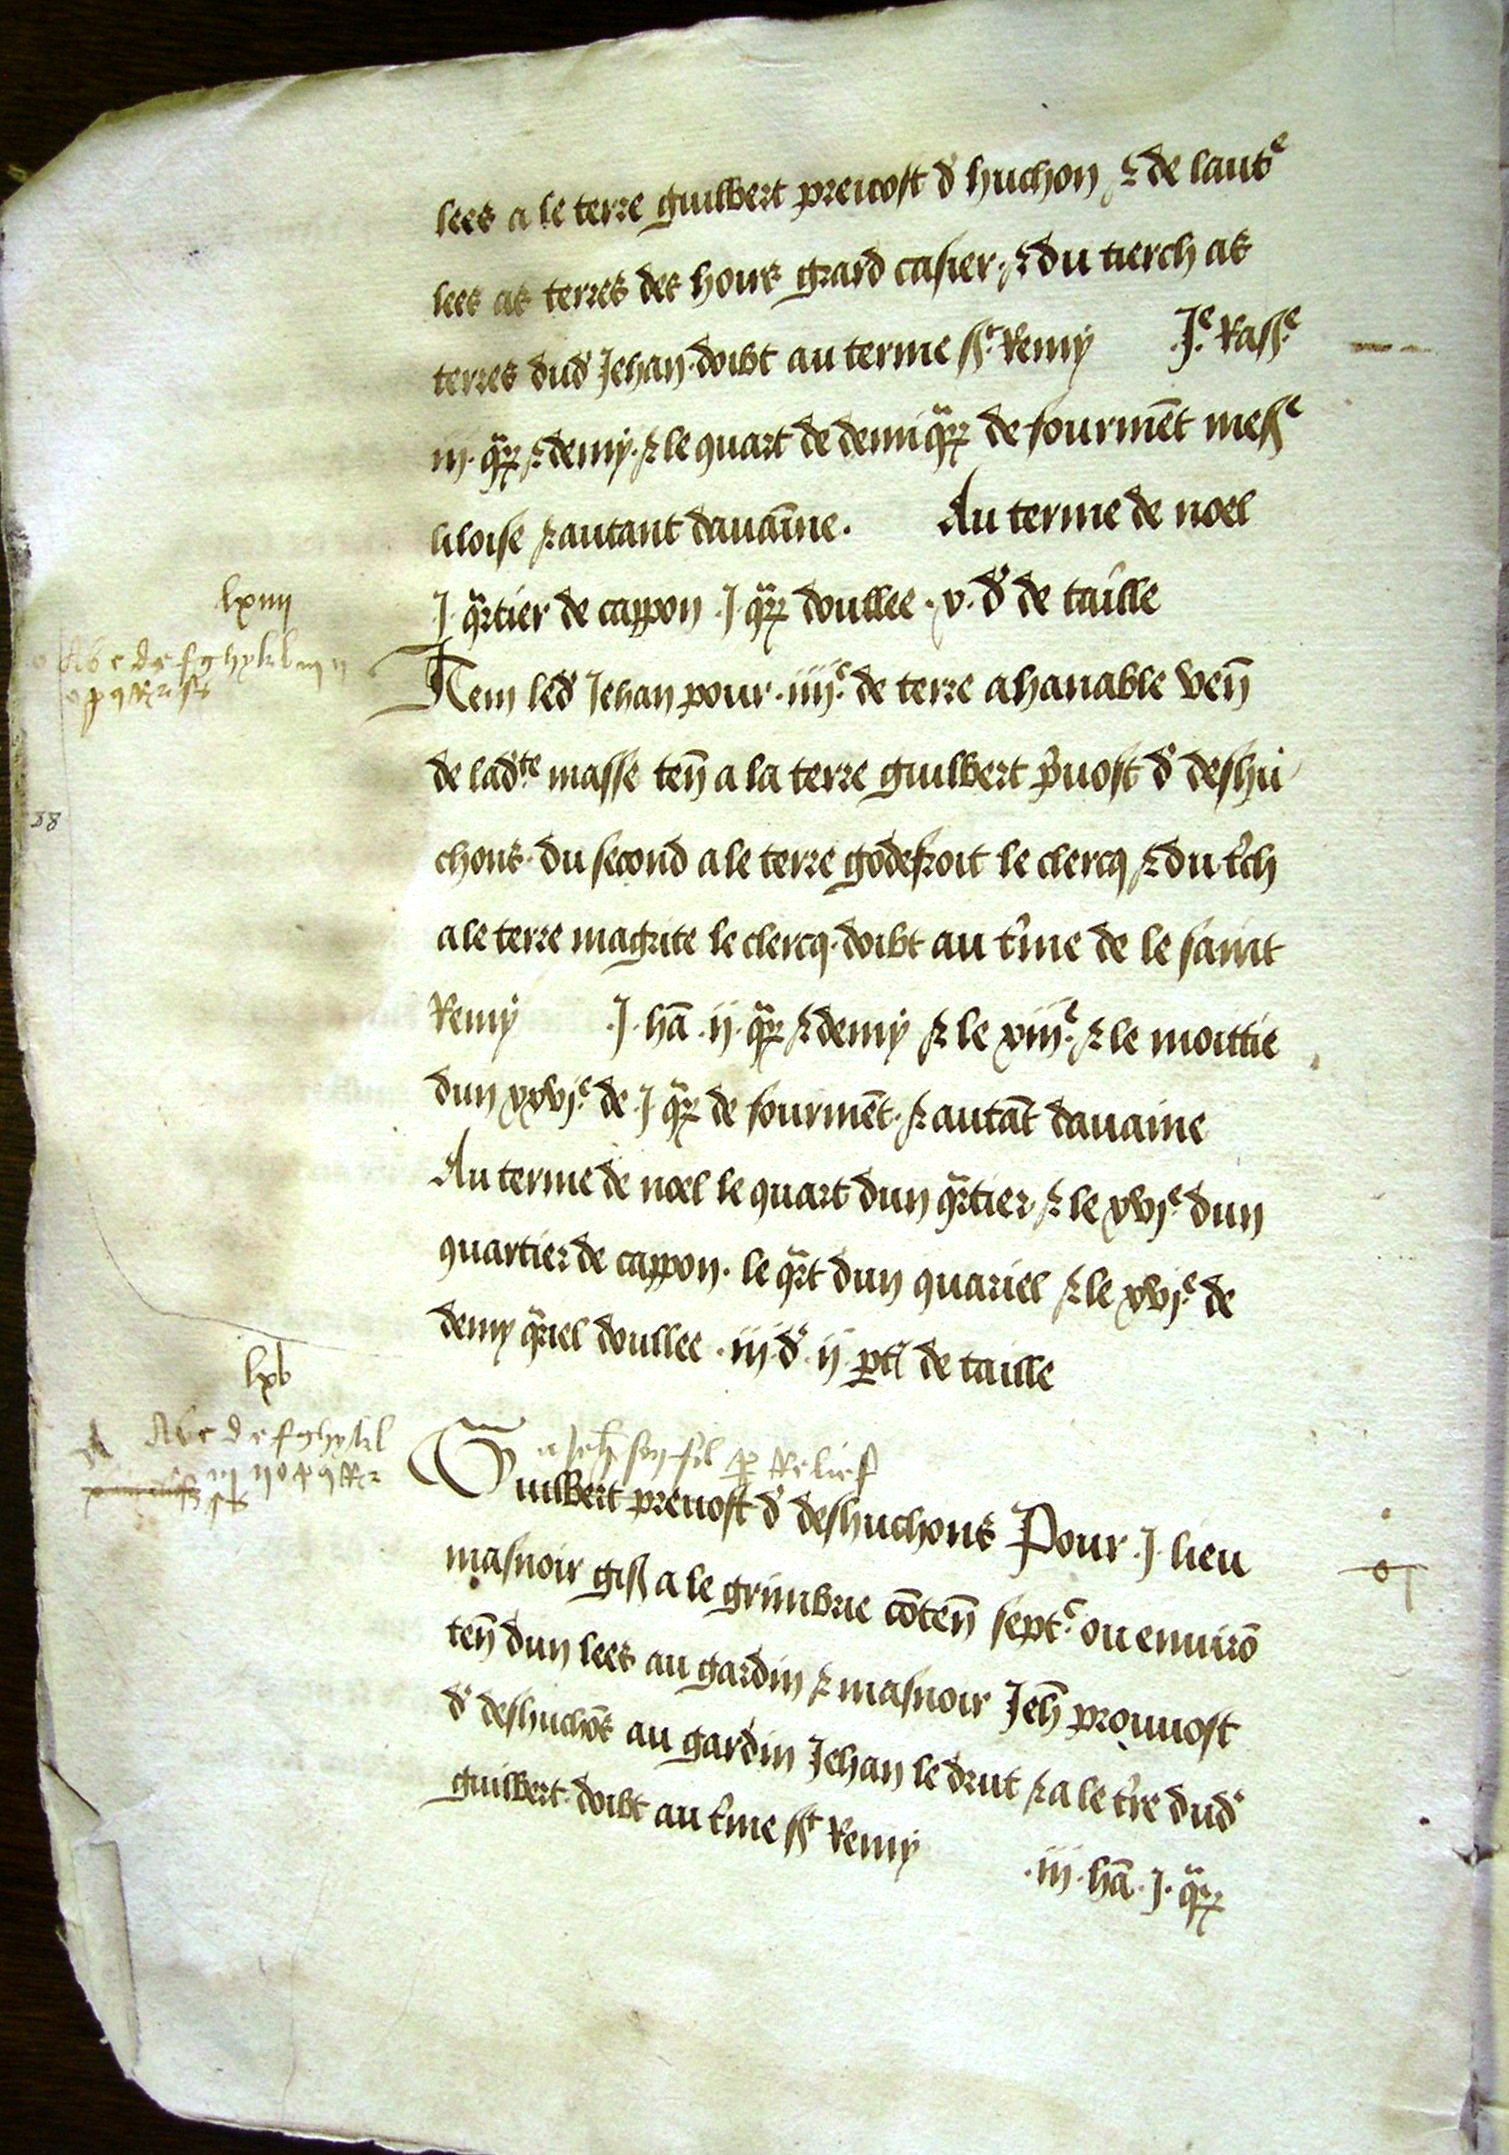 lees a le terre guilbert prevost d' huchon & de laut^e
lees as terres des hons grard casier . & du tierch as
terres dud' Jehan . doibt au terme s^t . Remy J^e. Rass^e
iij . q̃rẽ & demy . & le quart de demi q̃rẽ de fourmẽt mes^e
liloise & autant davaĩne . Au terme de noel
J . q̃rtier de cappon . J . q̃rẽ doullee . v . d' de taille
lxiiij
A b c d e f g h y k l m n
o p q
Item led' Jehan pour . iiij^c. de terre ahanable veñ
de lad^te masse teñ a la terre guilbert p̃vost d' deshu
chons . du second a le terre godefroit le clercq & du t'ch
a le terre magrite le clercq . doibt au t'me de le saint
Remy . J . hã . ij . q̃rẽ & demy & le viij^e . & le moittie
dun xxvj^e. de . J q̃rẽ de fourmẽt . & autãt davaine
Au terme de noel le quart dun q̃rtier . & le xvj^e dun
quartier de cappon . le q̃rt dun quariel & le xvj^e . de
demy q̃riel doullee . iij . d' . ij . ptĩ de taille
lxv
A b c d e f g h y k l
m n o p q
a Jeh̃ son fil p̱ relief
Guilbert prevost d' deshuchons Pour . J . lieu
masnoir gis̃ a le grimbrie cõteñ sept^c . ou envirõ
teñ dun lees au gardin & masnoir Jeh̃ prouvost
d' deshuchõs au gardin Jehan le drut & a le t're dud'
guilbert . doibt au t'me s^t Remy . iij . hã . J . q̃rẽ